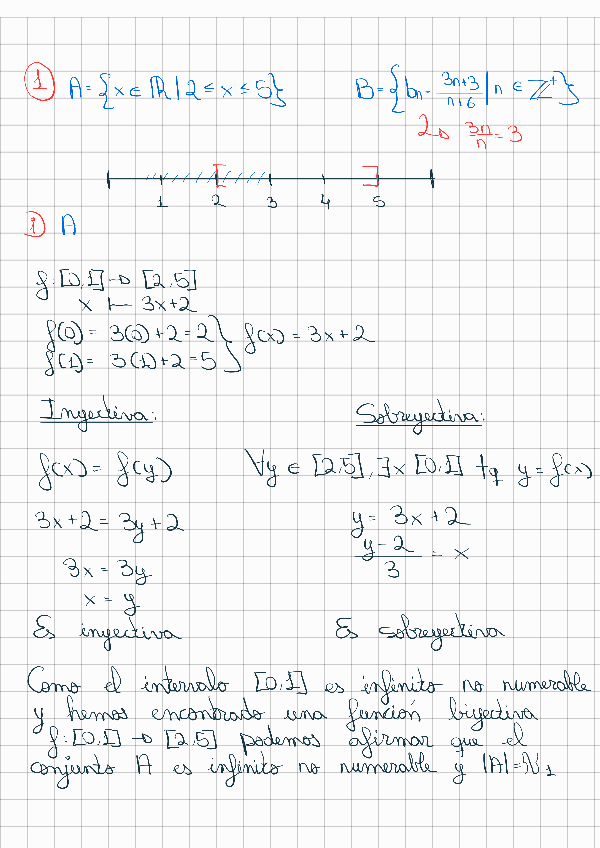 ① A = {x ∈ ℝ | 2 ≤ x ≤ 5} B = {bn = (3n+3)/(n+6) | n ∈ ℤ⁺}
2→ 3n/n = 3
1 2 3 4 5
i) A
f: [0,1] → [2,5]
x ↦ 3x+2
f(0) = 3(0)+2 = 2
f(1) = 3(1)+2 = 5 } f(x) = 3x+2
Inyectiva: Sobreyectiva:
f(x) = f(y) ∀y ∈ [2,5], ∃x [0,1] tq y = f(x)
3x+2 = 3y+2 y = 3x+2
3x = 3y (y-2)/3 = x
x = y
Es inyectiva Es sobreyectiva
Como el intervalo [0,1] es infinito no numerable
y hemos encontrado una función biyectiva
f: [0,1] → [2,5] podemos afirmar que el
conjunto A es infinito no numerable y |A| = ℵ₁